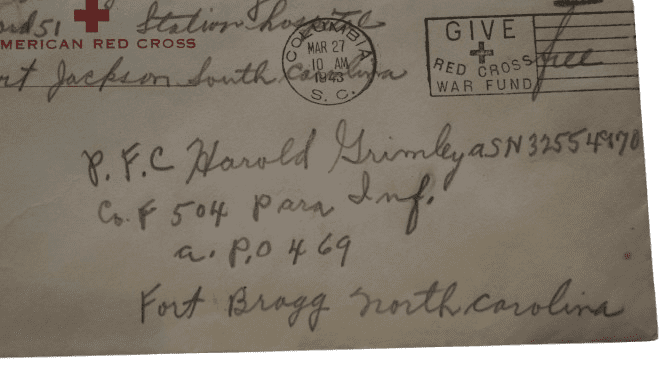 Station Hospital
AMERICAN RED CROSS
Jackson South Carolina
COLUMBIA
MAR 27
10 AM
1943
S. C.
GIVE
RED CROSS
WAR FUND
free
P.F.C Harold Grimley ASN 32554970
Co. F 504 Para Inf.
a. P.O 469
Fort Bragg North Carolina